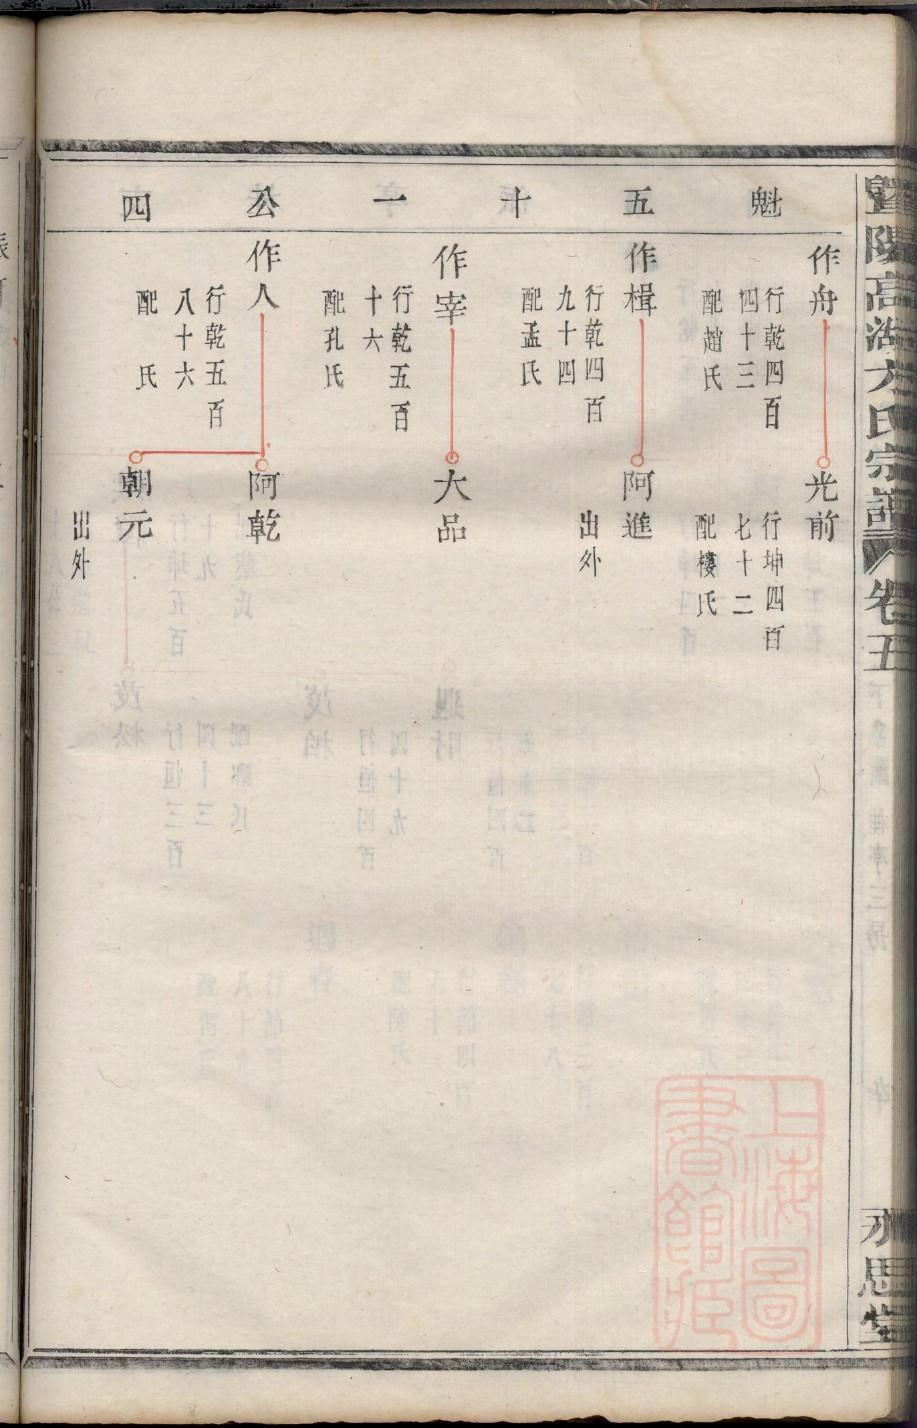 暨陽高湖方氏宗譜
卷五
永思堂
魁五十一公四
作舟
行乾四百
四十三
配趙氏
光前
行坤四百
七十二
配樓氏
作楫
行乾四百
九十四
配孟氏
阿進
出外
作宰
行乾五百
十六
配孔氏
大品
作人
行乾五百
八十六
配 氏
阿乾
朝元
出外
上海圖
書館藏